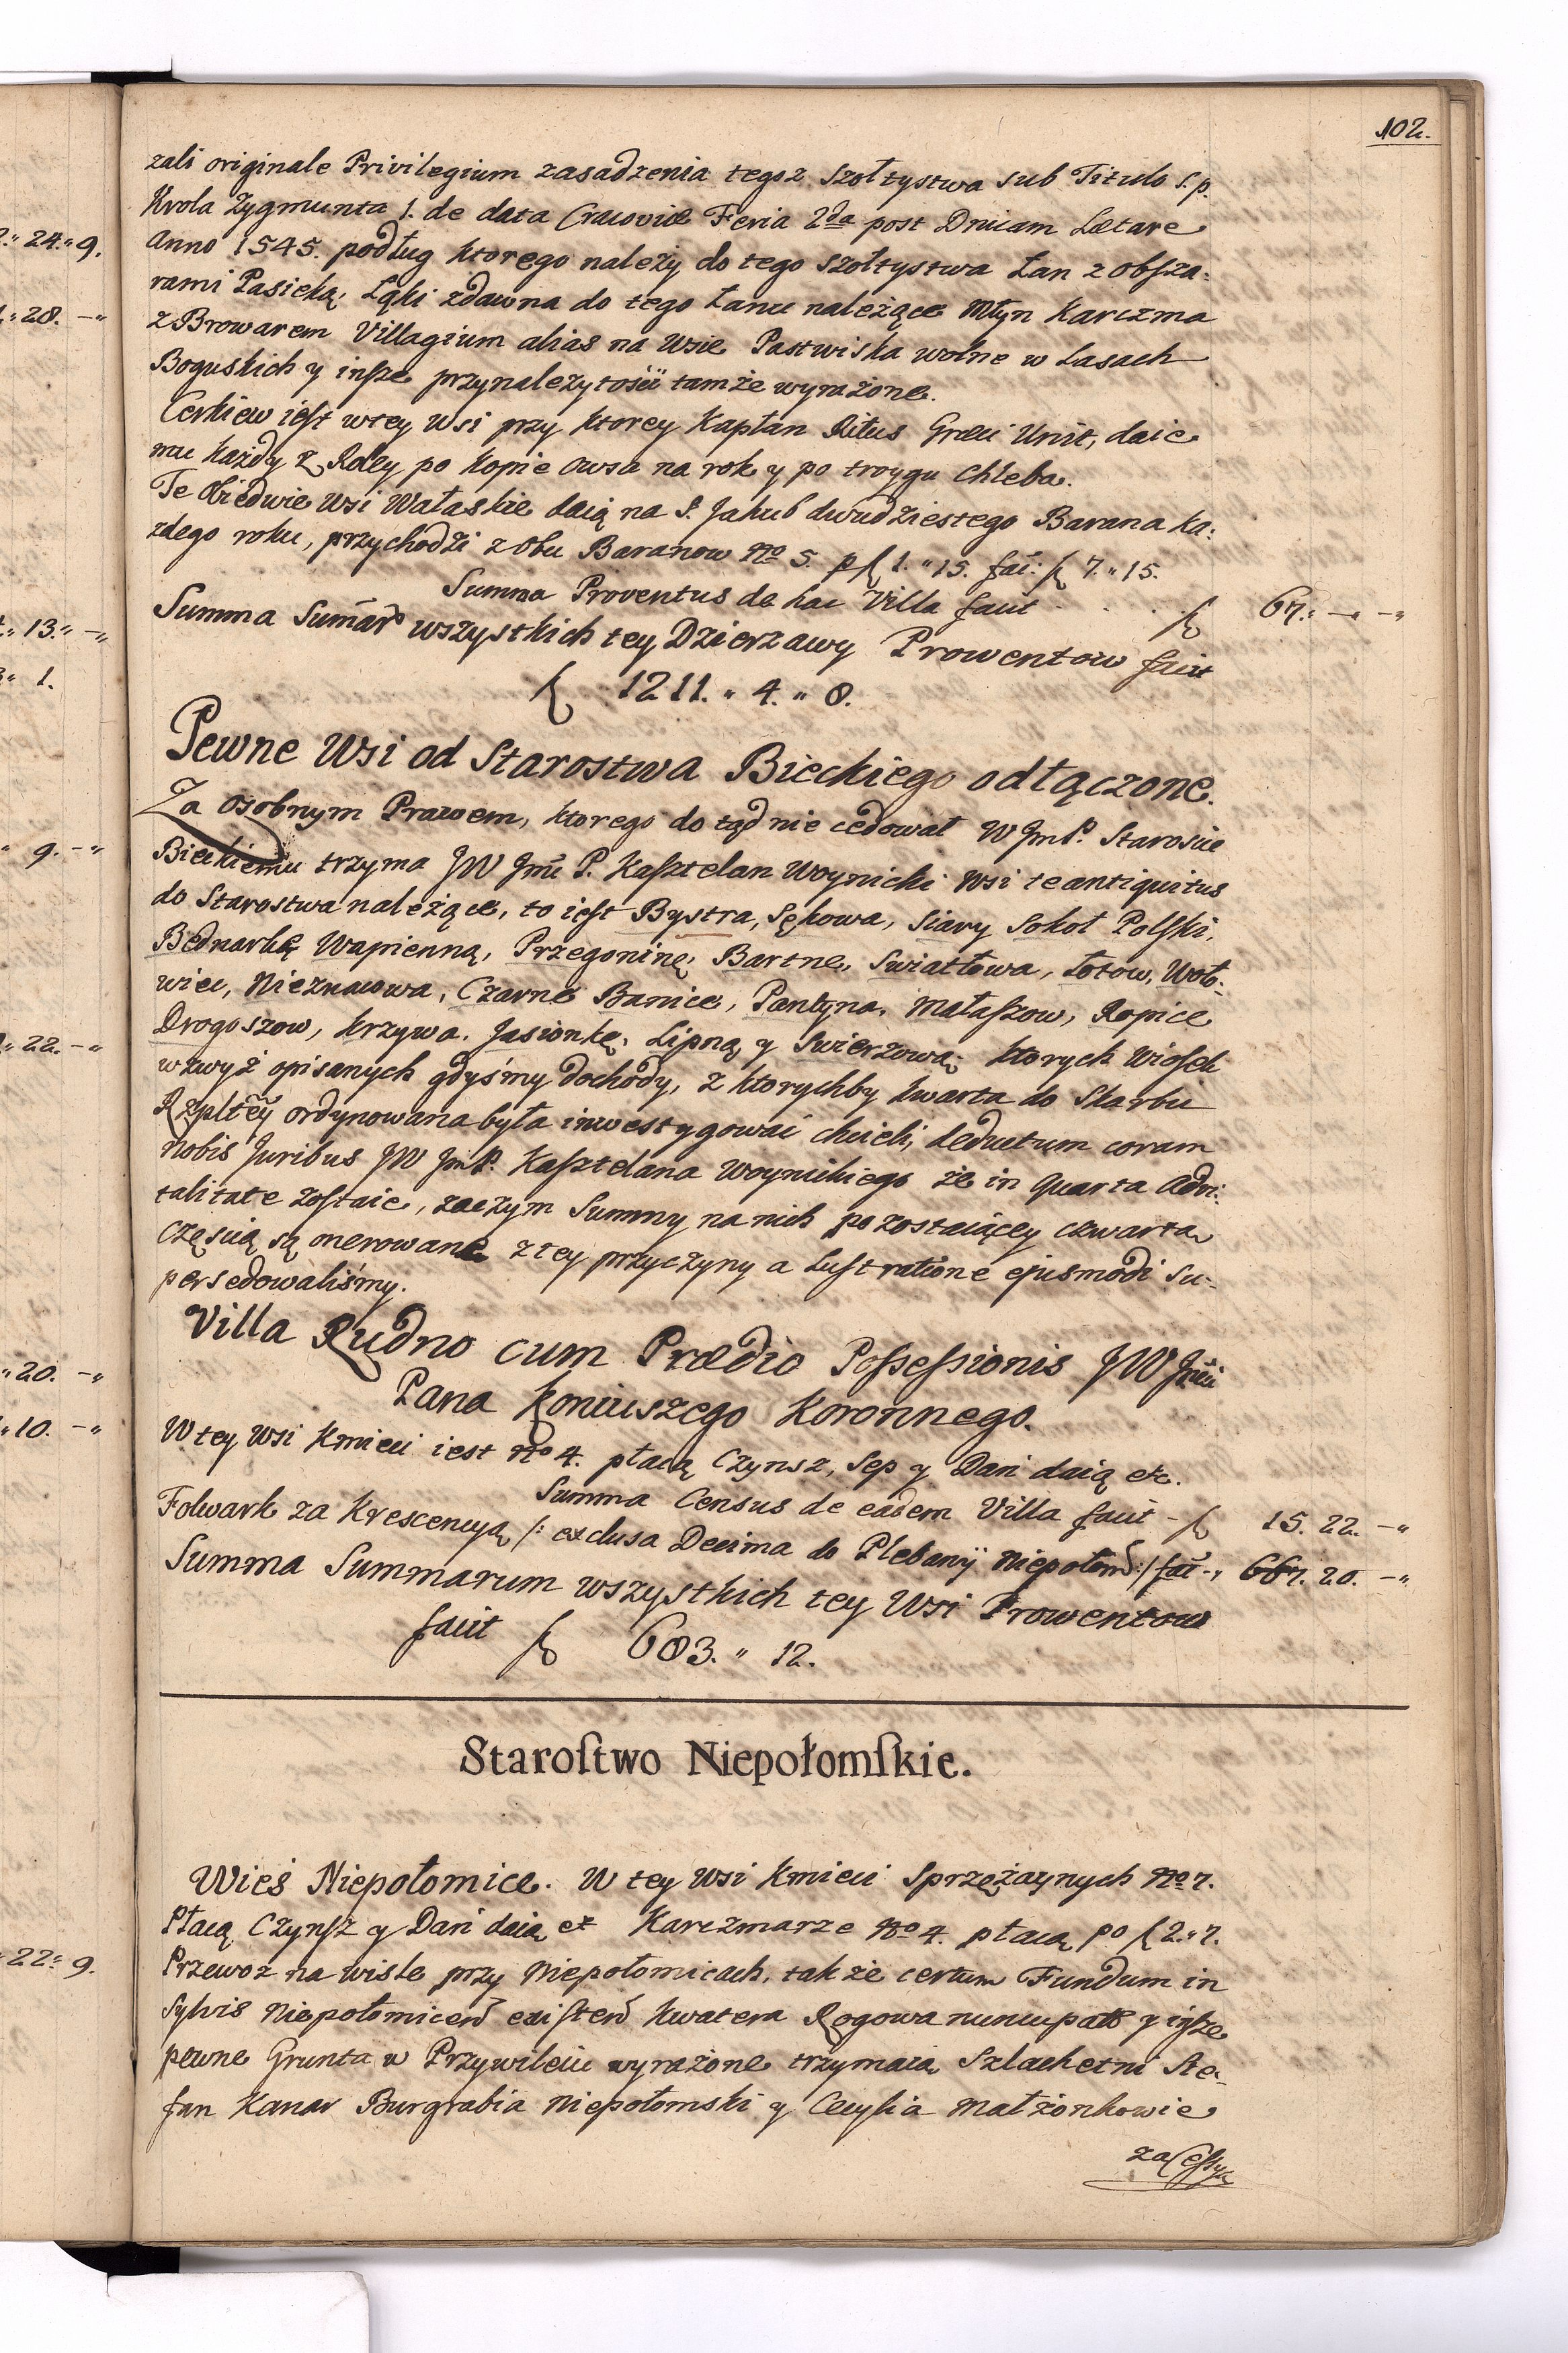 102.
zali originale Privilegium zasadzenia tegoż Szołtystwa sub Titulo S. p.
Krola Zygmunta 1. de data Cracoviæ Feria 2da post Dnicam Lætare
Anno 1545. podług ktorego należy do tego Szołtystwa Łan z obsza:
rami Pasieką, Łąki zdawna do tego Łanu należące Młyn Karczma
z Browarem Villagium alias na Wsie Pastwiska wolne w Lasach
Boguskich y insze przynależytości tamże wyrażone.
Cerkiew iest w tey Wsi przy ktorey Kapłan Ritus Græci Unit, daie
mu każdy z Roley po kopie owsa na rok y po troygu chleba.
Te obiedwie Wsi Wałaskie daią na S. Jakub dwudziestego Barana ka:
żdego roku, przychodzi z obu Baranow No 5. p f 1. " 15. fac: f 7. " 15.
Summa Proventus de hac Villa facit . . . . f 67. " — " — "
Summa Sumar wszystkich tey Dzierzawy Prowentow facit
f 1211. " 4. " 8.
Pewne Wsi od Starostwa Bieckiego odłączone.
Za osobnym Prawem, ktorego do tąd nie cedował W JmP. Staroscie
Bieckiemu trzyma JW Jmć P. Kasztelan Woynicki Wsi te antiquitus
do Starostwa należące, to iest Bystra, Sękowa, Siary Sokoł Polski,
Bednarkę Wapienną, Przegoninę, Bartne, Swiątkowa, Łotow, Woło-
wiec, Nieznacowa, Czarne Banice, Pantyna, Małaszow, Ropice
Drogoszow, Krzywa, Jasionkę, Lipną y Swierzowa; ktorych Wiosek
wzwyż opisanych gdyśmy dochody, z ktorychby kwarta do Skarbu
Rzpltey ordynowana była inwestygować chcieli, deductum coram
Nobis Juribus JW JmP. Kasztelana Woynickiego że in quarta Advi:
talitate zostaie, zaczym Summy na nich pozostaiącey czwartą
Częścią są onerowane z tey przyczyny a Lustratione ejusmodi su-
persedowaliśmy.
Villa Rudno cum Prædio Possessionis JW Jmći
Pana Koniuszego Koronnego.
W tey Wsi Kmieci iest No 4. płacą Czynsz, Sep y Dań daią etc.
Summa Census de eadem Villa facit - f 15. 22. — "
Folwark za Krescencyą /: exclusa Decima do Plebanÿ Niepołom :/ fac -, 667. 20. — "
Summa Summarum wszystkich tey Wsi Prowentow
facit f 683. " 12.
Starostwo Niepołomskie.
Wieś Niepołomice. W tey Wsi Kmieci Sprzężaynych No 7.
Płacą Czynsz y Dań daią etc Karczmarze No 4. płacą po f 2. " 7.
Przewoz na Wisle przy Niepołomicach, także certum Fundum in
Sylvis Niepołomicen existen Kwatera Rogowa nuncupato y insze
pewne Grunta w Przywileiu wyrażone trzymaią Szlachetni Ste-
fan Kanar Burgrabia Niepołomski y Cecylia Małżonkowie
za Cessyą
24. " 9.
28. — "
13. " — "
1.
9. — "
22. — "
20. — "
10. — "
22 " 9.